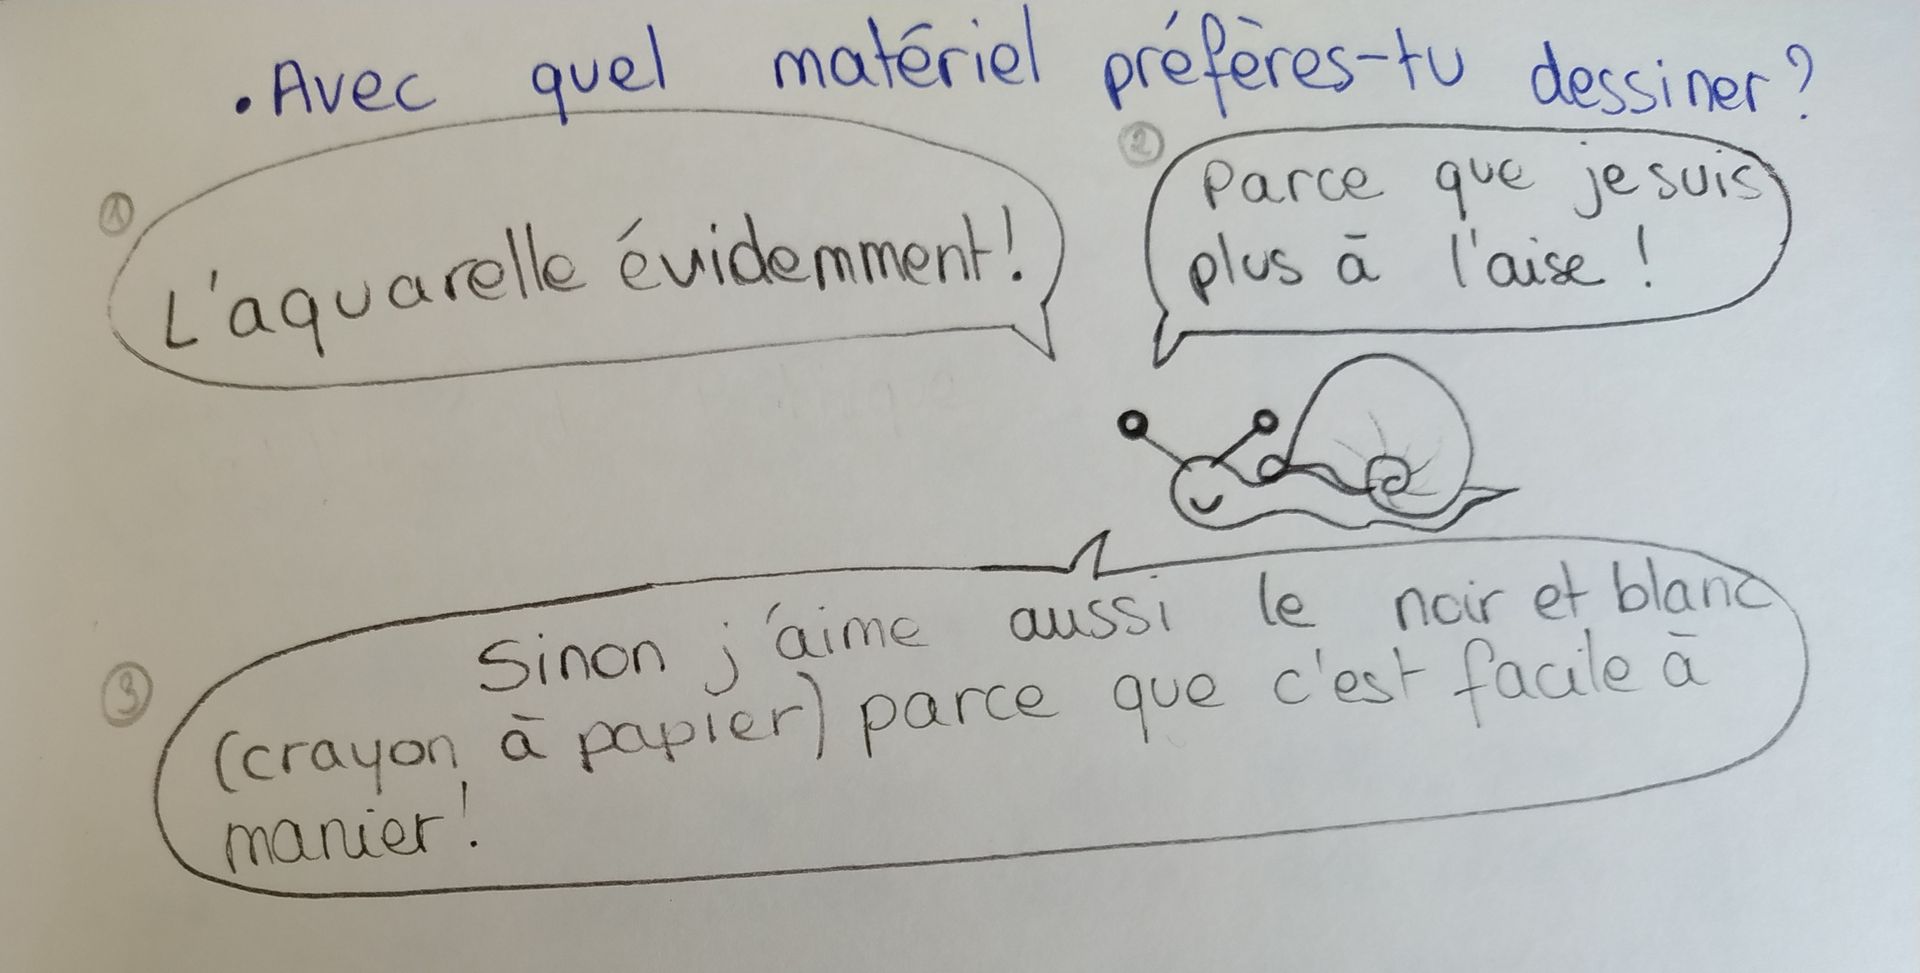 . Avec quel matériel préfères-tu dessiner ?
①
L'aquarelle évidemment !
②
Parce que je suis
plus à l'aise !
③
Sinon j'aime aussi le noir et blanc
(crayon à papier) parce que c'est facile à
manier !